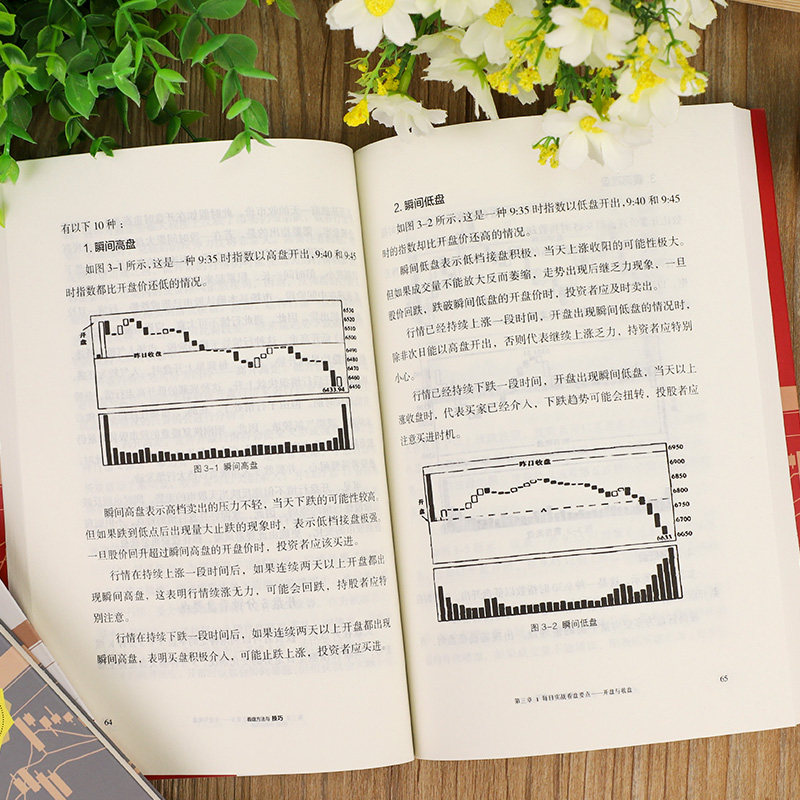 有以下 10 种：
1. 瞬间高盘
如图 3-1 所示，这是一种 9:35 时指数以高盘开出，9:40 和 9:45
时指数都比开盘价还低的情况。
开盘
昨日收盘
6530
6520
6510
6500
6490
6480
6470
6460
6450
6433.94
图 3-1 瞬间高盘
瞬间高盘表示高档卖出的压力不轻，当天下跌的可能性较高。
但如果跌到低点后出现量大止跌的现象时，表示低档接盘极强。
一旦股价回升超过瞬间高盘的开盘价时，投资者应该买进。
行情在持续上涨一段时间后，如果连续两天以上开盘都出
现瞬间高盘，这表明行情续涨无力，可能会回跌，持股者应特
别注意。
行情在持续下跌一段时间后，如果连续两天以上开盘都出现
瞬间高盘，表明买盘积极介入，可能止跌上涨，投资者应买进。
64
看盘方法与技巧
2. 瞬间低盘
如图 3-2 所示，这是一种 9:35 时指数以低盘开出，9:40 和 9:45
时的指数却比开盘价还高的情况。
瞬间低盘表示低档接盘积极，当天上涨收阳的可能性极大。
但如果成交量不能放大反而萎缩，走势出现后继乏力现象，一旦
股价回跌，跌破瞬间低盘的开盘价时，投资者应及时卖出。
行情已经持续上涨一段时间，开盘出现瞬间低盘的情况时，
除非次日能以高盘开出，否则代表继续上涨乏力，持资者应特别
小心。
行情已经持续下跌一段时间，开盘出现瞬间低盘，当天以上
涨收盘时，代表买家已经介入，下跌趋势可能会扭转，投股者应
注意买进时机。
昨日收盘
开盘
6950
6900
6850
6800
6750
6700
6650
6633
图 3-2 瞬间低盘
第三章 每日实战看盘要点——开盘与收盘
65